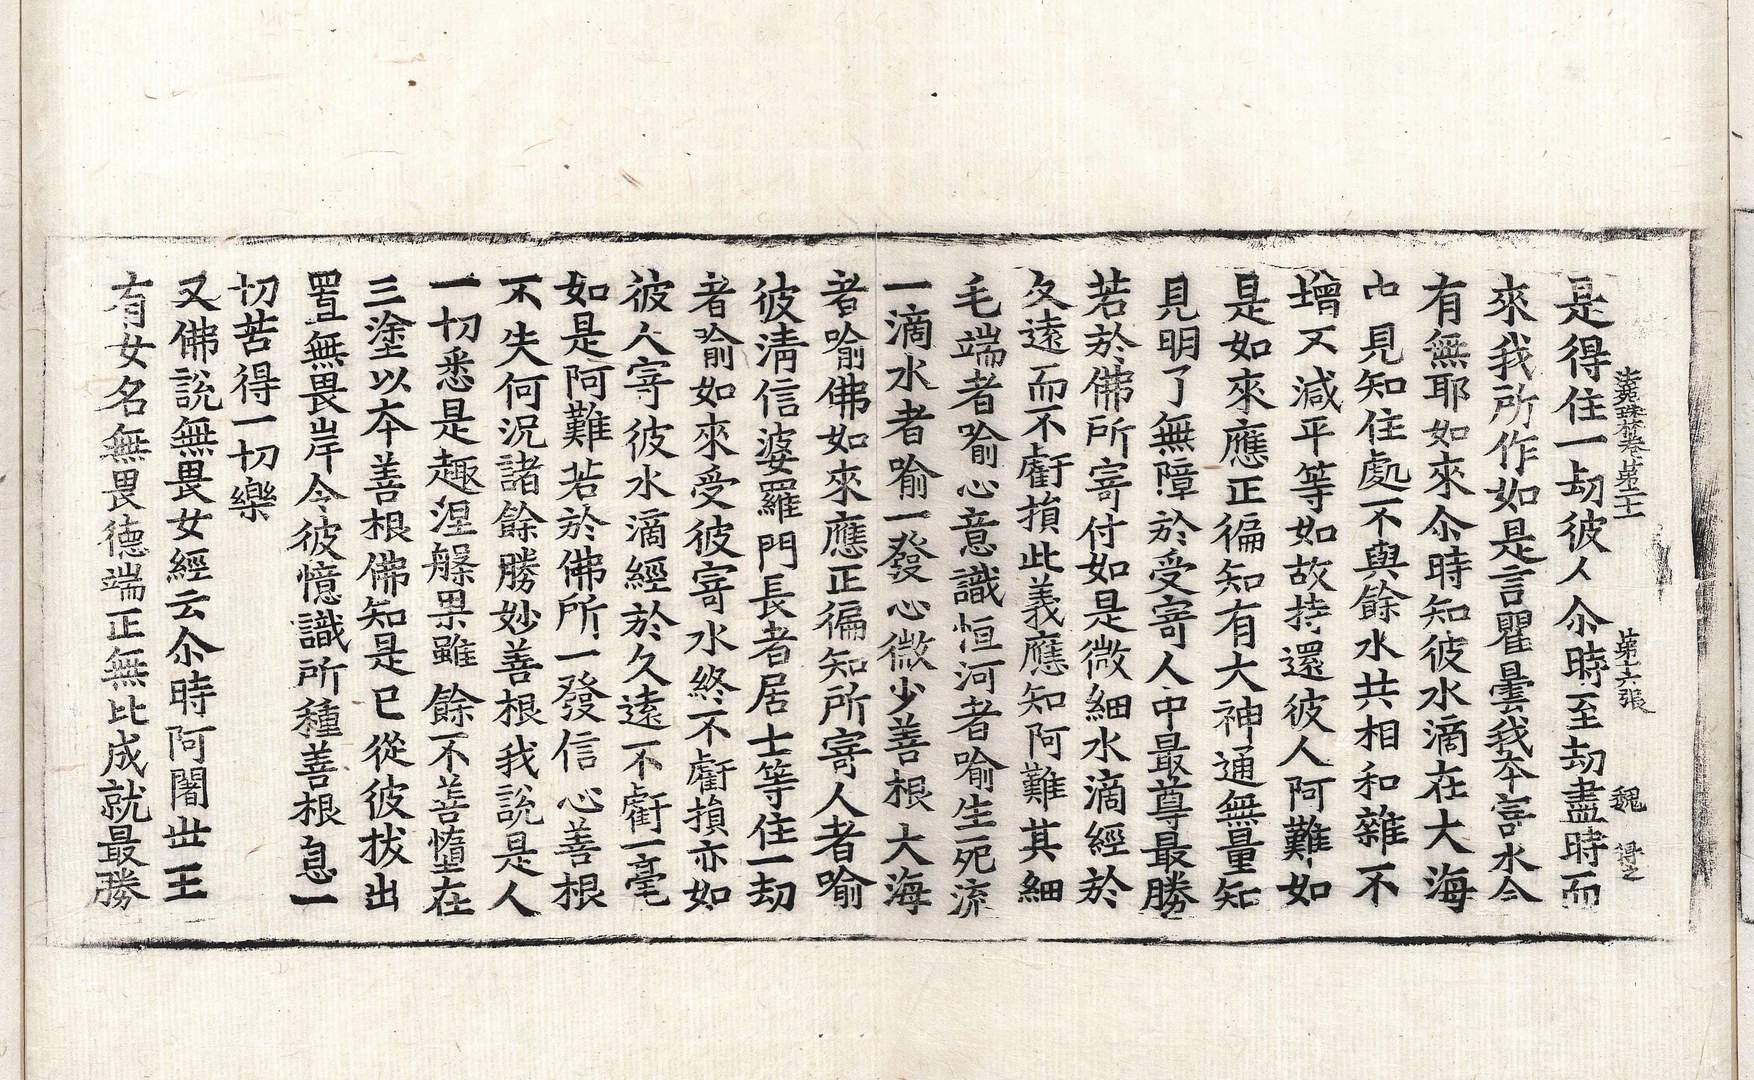 法苑珠林卷第二十一 第十六張 魏 得之
是得住一劫彼人尒時至劫盡時而
來我所作如是言瞿曇我本寄水今
有無耶如來尒時知彼水滴在大海
中見知住處不與餘水共相和雜不
增不減平等如故持還彼人阿難如
是如來應正徧知有大神通無量知
見明了無障於受寄人中最尊最勝
若於佛所寄付如是微細水滴經於
久遠而不虧損此義應知阿難其細
毛端者喻心意識恒河者喻生死流
一滴水者喻一發心微少善根大海
者喻佛如來應正徧知所寄人者喻
彼清信婆羅門長者居士等住一劫
者喻如來受彼寄水終不虧損亦如
彼人寄彼水滴經於久遠不虧一毫
如是阿難若於佛所一發信心善根
不失何況諸餘勝妙善根我說是人
一切悉是趣涅槃果雖餘不善墮在
三塗以本善根佛知是已從彼拔出
置無畏岸令彼憶識所種善根息一
切苦得一切樂
又佛說無畏女經云尒時阿闍世王
有女名無畏德端正無比成就最勝